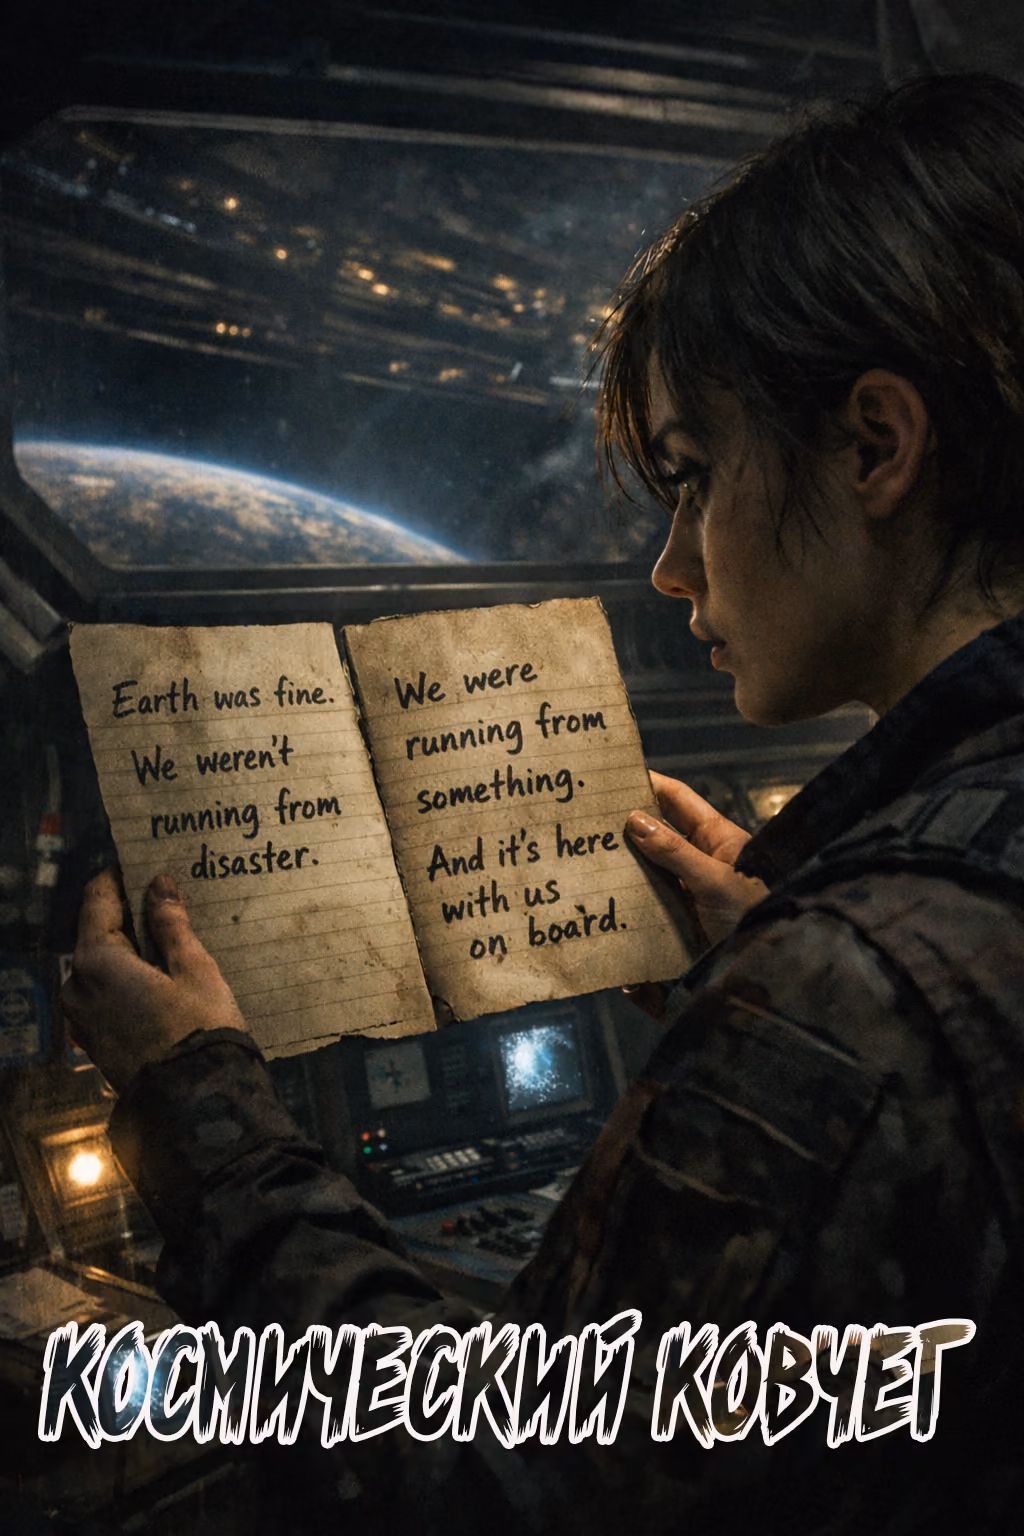 Earth was fine.
We weren't
running from
disaster.
We were
running from
something.
And it's here
with us
on board.
КОСМИЧЕСКИЙ КОВЧЕГ